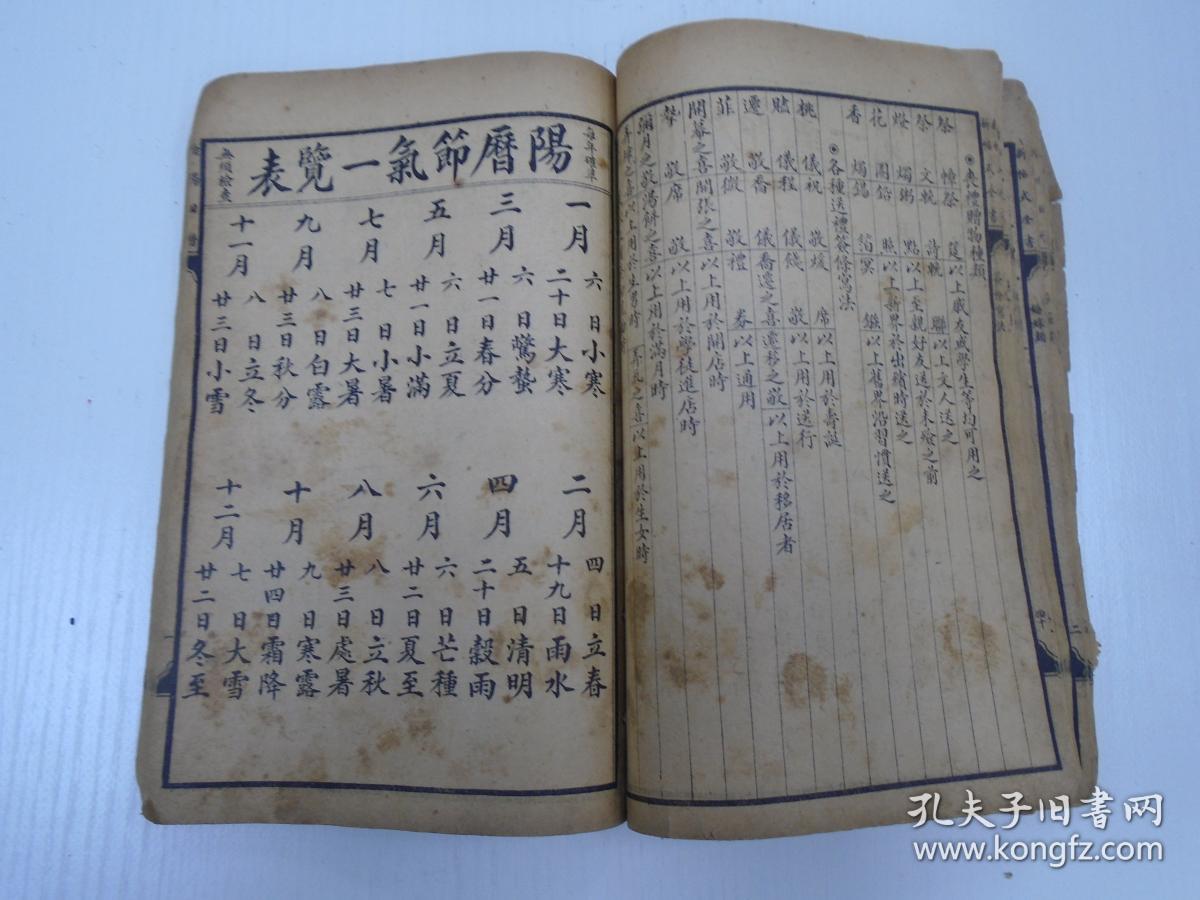 ◉喪禮贈物種類
祭 幛祭 筵以上戚友或學生等均可用之
祭 文軌 詩輓 聯以上文人送之
燭粥 點以上至親好友送於未殮之前
花 圈鉛 照以上新界於出殯時送之
香 燭錫 箔冥 鏹以上舊界沿習慣送之
◉各種送禮簽條寫法
桃 儀祝 敬煖 席以上用於壽誕
贐 儀程 儀餞 敬以上用於送行
遷 敬喬 儀喬遷之喜遷移之敬以上用於移居者
菲 敬微 敬禮 券以上通用
開幕之喜開張之喜以上用於開店時
贄 敬席 敬以上用於學徒進店時
彌月之敬湯餅之喜以上用於滿月時
弄璋之喜以上用於生男時 弄瓦之喜以上用於生女時
每年確準
陽曆節氣一覽表
無須檢查
一月
六日小寒
二十日大寒
三月
六日驚蟄
廿一日春分
五月
六日立夏
廿一日小滿
七月
七日小暑
廿三日大暑
九月
八日白露
廿三日秋分
十一月
八日立冬
廿三日小雪
二月
四日立春
十九日雨水
四月
五日清明
二十日穀雨
六月
六日芒種
廿二日夏至
八月
八日立秋
廿三日處暑
十月
九日寒露
廿四日霜降
十二月
七日大雪
廿二日冬至
孔夫子旧书网
www.kongfz.com